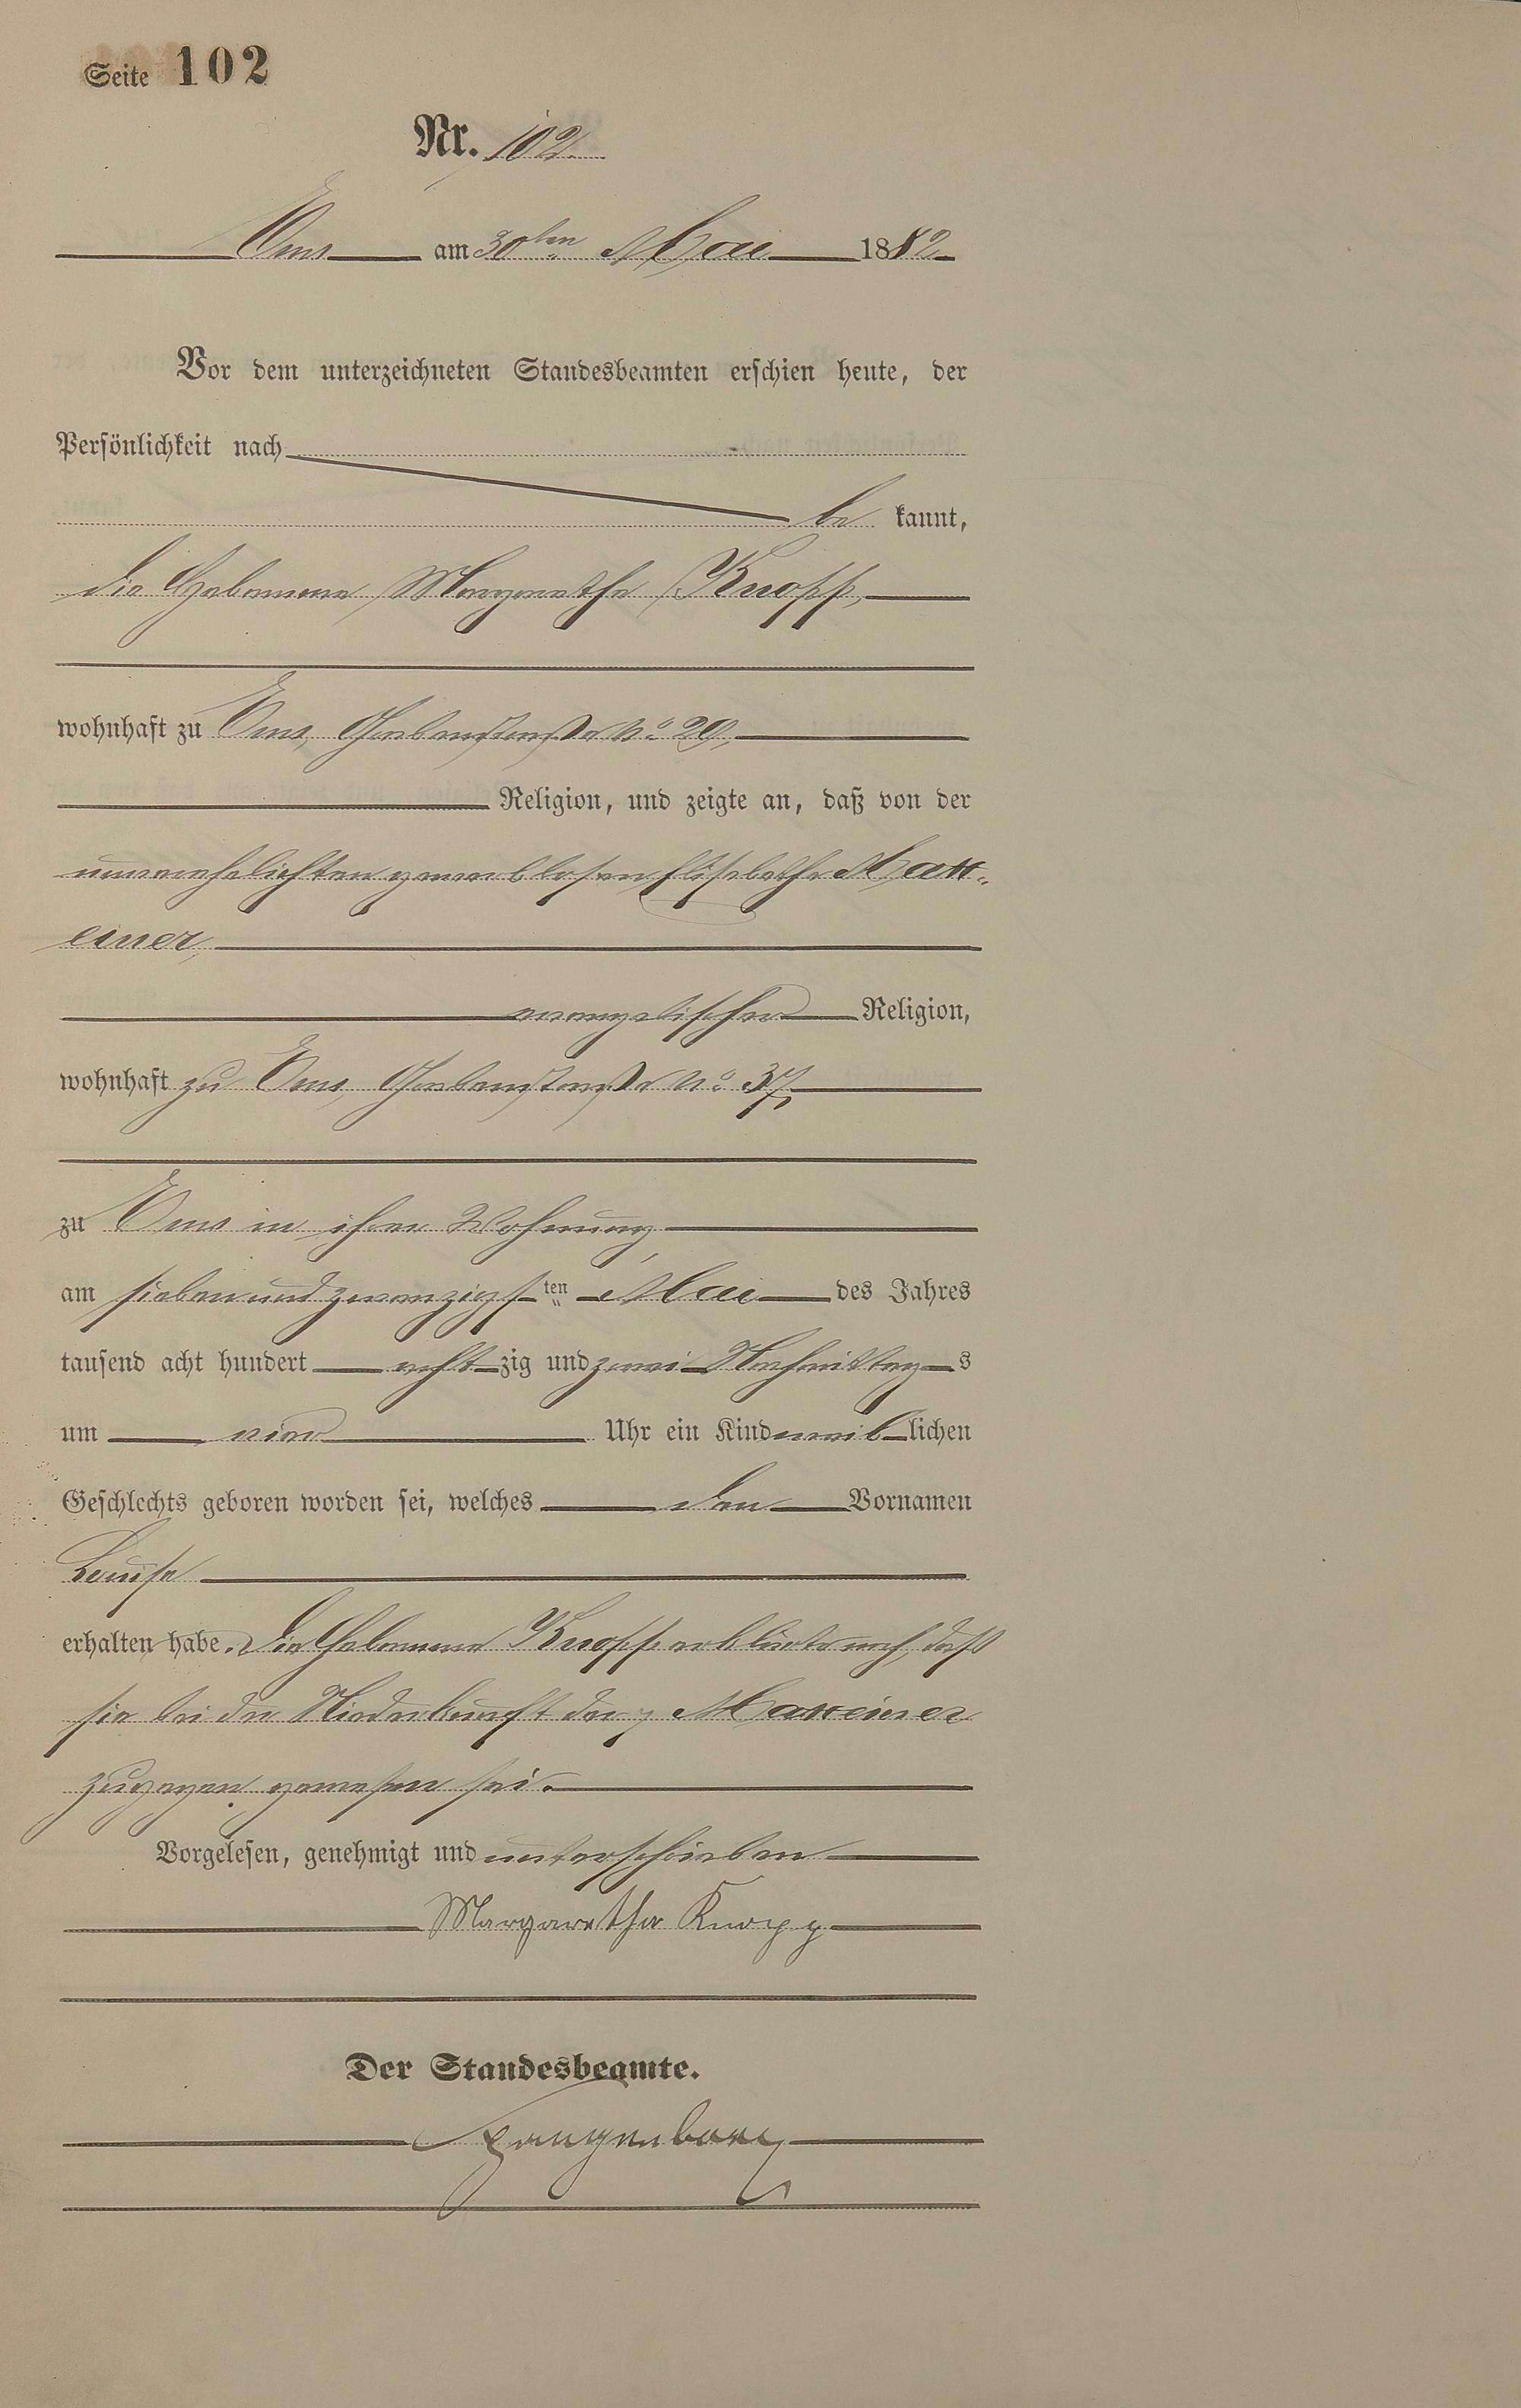 Seite 102
Nr. 102.
Ems am 30ten Mai 1882
Vor dem unterzeichneten Standesbeamten erschien heute, der
Persönlichkeit nach
be kannt,
die Hebamme Margarethe Knopp,
wohnhaft zu Ems, No 29,
Religion, und zeigte an, daß von der
unverehelichten gewerblosen Elisabethe
einer,
evangelischer Religion,
wohnhaft zu Ems No 37,
zu Ems in ihrer Wohnung
am siebenundzwanzigsten Mai des Jahres
tausend acht hundert achtzig und zwei Nachmittags
um vier Uhr ein Kind weiblichen
Geschlechts geboren worden sei, welches den Vornamen
Louise
erhalten habe. Die Hebamme Knopp erklärte noch, daß
sie bei der Niederkunft der
zugegen gewesen sei.
Vorgelesen, genehmigt und unterschrieben
Margaretha Knopp
Der Standesbeamte.